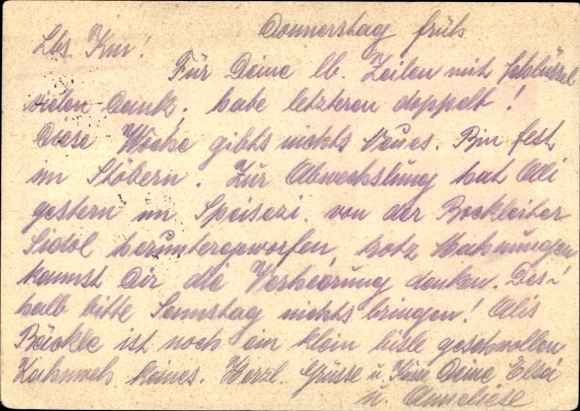 Donnerstag früh
Lbs. Kur!
Für Deine lb. Zeilen mit
vielen Dank, habe letzteren doppelt!
Diese Woche gibts nichts Neues. Bin fest
im Stöbern. Zur Abwechslung hat Alli
gestern im Speisezi. von der Bockleiter
Sidol heruntergeworfen, trotz Mahnungen
kannst Dir die Verheerung denken. Des-
halb bitte Samstag nichts bringen! Alis
Bäckle ist noch ein klein bisle geschwollen
Zahnweh keines. Herzl. Grüsse u. Küsse Deine Elsi
u. Anneliese